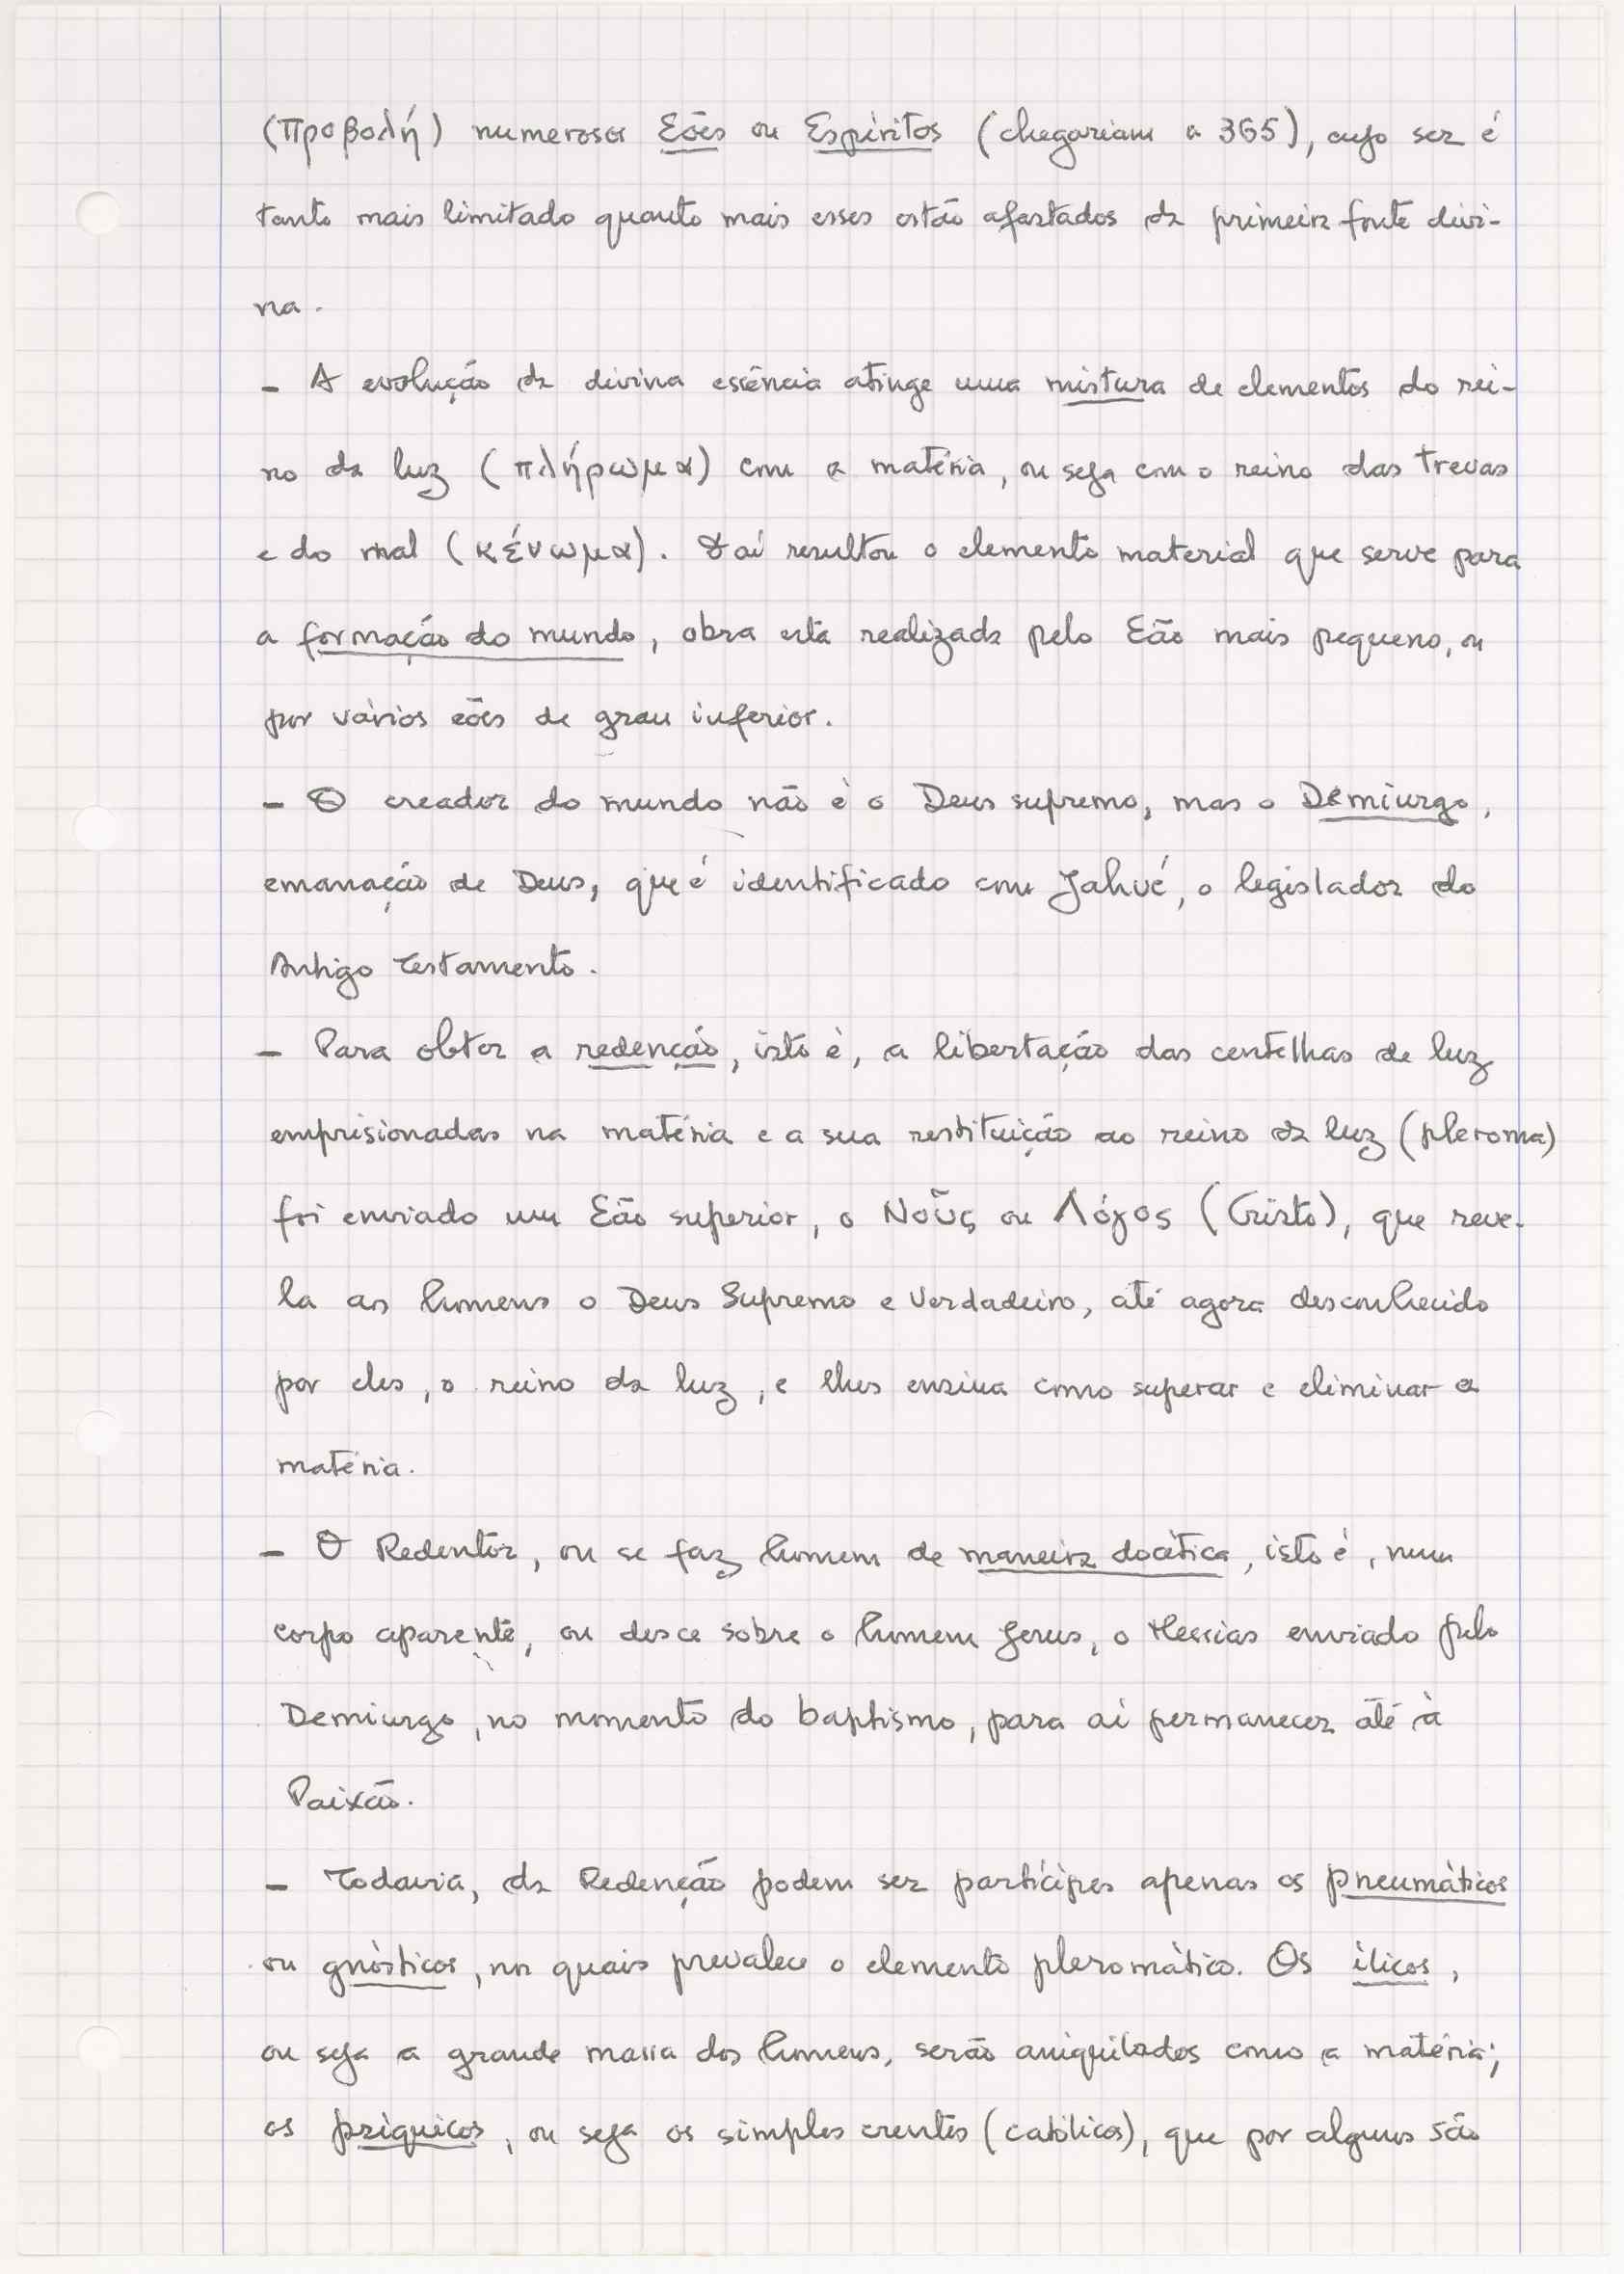 (προβολή) numerosos Eões ou Espíritos (chegariam a 365), cujo ser é
tanto mais limitado quanto mais esses estão afastados da primeira fonte divi-
na.
– A evolução da divina essência atinge uma mistura de elementos do rei-
no da luz (πλήρωμα) com a matéria, ou seja com o reino das trevas
e do mal (κένωμα). Daí resultou o elemento material que serve para
a formação do mundo, obra esta realizada pelo Eão mais pequeno, ou
por vários eões de grau inferior.
– O creador do mundo não è o Deus supremo, mas o Demiurgo,
emanação de Deus, que é identificado com Jahvé, o legislador do
Antigo Testamento.
– Para obter a redenção, isto è, a libertação das centelhas de luz
emprisionadas na matéria e a sua restituição ao reino da luz (pleroma)
foi enviado um Eão superior, o Νοῦς ou Λόγος (Cristo), que reve-
la aos homens o Deus Supremo e Verdadeiro, até agora desconhecido
por eles, o reino da luz, e lhes ensina como superar e eliminar a
matéria.
– O Redentor, ou se faz homem de maneira docética, isto é, num
corpo aparente, ou desce sobre o homem Jesus, o Messias enviado pelo
Demiurgo, no momento do baptismo, para aí permanecer até à
Paixão.
– Todavia, da Redenção podem ser partícipes apenas os pneumáticos
ou gnósticos, nos quais prevalece o elemento pleromático. Os ílicos,
ou seja a grande massa dos homens, serão aniquilados como a matéria;
os psíquicos, ou seja os simples crentes (católicos), que por alguns são